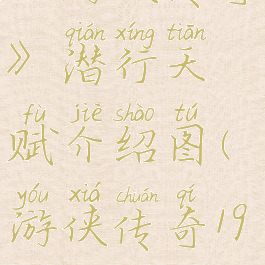 qián xíng tiān
》 潜行天
fù jiè shào tú
赋介绍图(
yóu xiá chuán qí
游侠传奇19